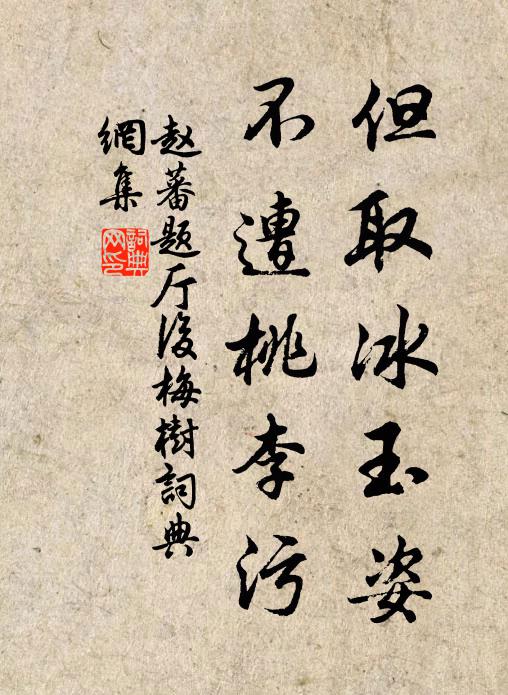 但取冰玉姿
不遭桃李污
赵蕃题厅後梅樹詞典
網集
詞典
网印